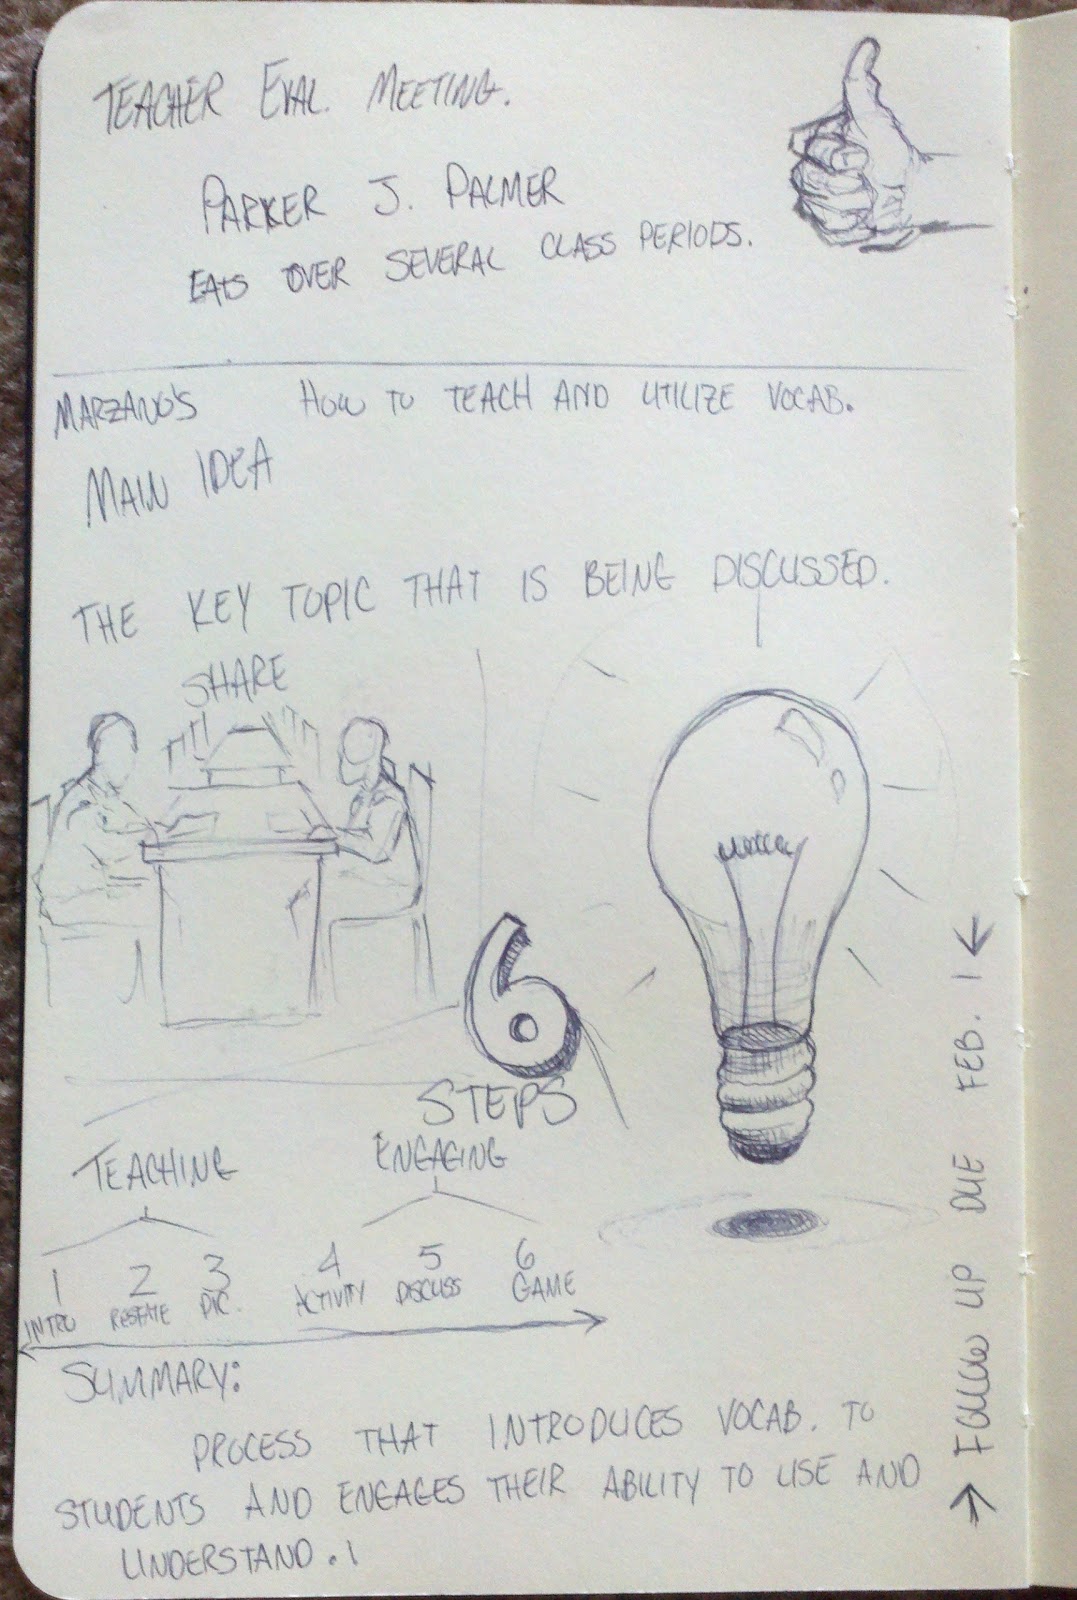 TEACHER EVAL. MEETING.
PARKER J. PALMER
EATS OVER SEVERAL CLASS PERIODS.
MARZANO'S HOW TO TEACH AND UTILIZE VOCAB.
MAIN IDEA
THE KEY TOPIC THAT IS BEING DISCUSSED.
SHARE
6
STEPS
TEACHING ENGAGING
1 2 3 4 5 6
INTRO RESTATE PIC. ACTIVITY DISCUSS GAME
SUMMARY:
PROCESS THAT INTRODUCES VOCAB. TO
STUDENTS AND ENGAGES THEIR ABILITY TO USE AND
UNDERSTAND.
→ FOLLOW UP DUE FEB. 1 ←